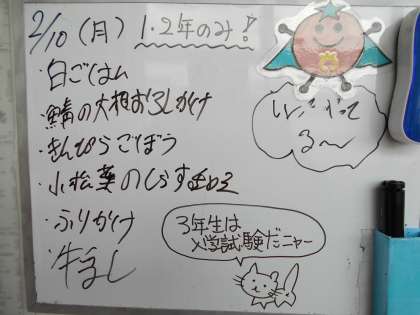 2/10(月) 1・2年のみ!
・白ごはん
・鯖の大根おろしかけ
・きんぴらごぼう
・小松菜のしらす和え
・ふりかけ
・牛乳
3年生は
入学試験だニャー